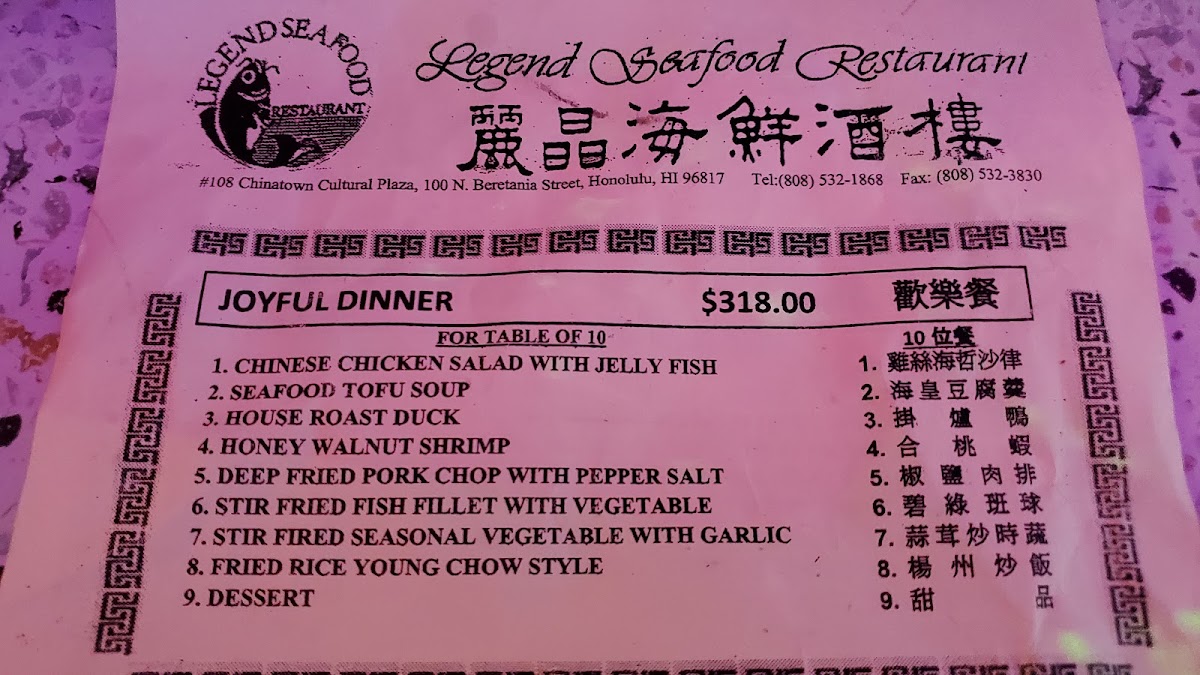 LEGEND SEAFOOD
RESTAURANT
Legend Seafood Restaurant
麗晶海鮮酒樓
#108 Chinatown Cultural Plaza, 100 N. Beretania Street, Honolulu, HI 96817 Tel:(808) 532-1868 Fax: (808) 532-3830
JOYFUL DINNER $318.00 歡樂餐
FOR TABLE OF 10 10 位餐
1. CHINESE CHICKEN SALAD WITH JELLY FISH 1. 雞絲海哲沙律
2. SEAFOOD TOFU SOUP 2. 海皇豆腐羹
3. HOUSE ROAST DUCK 3. 掛爐鴨
4. HONEY WALNUT SHRIMP 4. 合桃蝦
5. DEEP FRIED PORK CHOP WITH PEPPER SALT 5. 椒鹽肉排
6. STIR FRIED FISH FILLET WITH VEGETABLE 6. 碧綠班球
7. STIR FIRED SEASONAL VEGETABLE WITH GARLIC 7. 蒜茸炒時蔬
8. FRIED RICE YOUNG CHOW STYLE 8. 楊州炒飯
9. DESSERT 9. 甜品